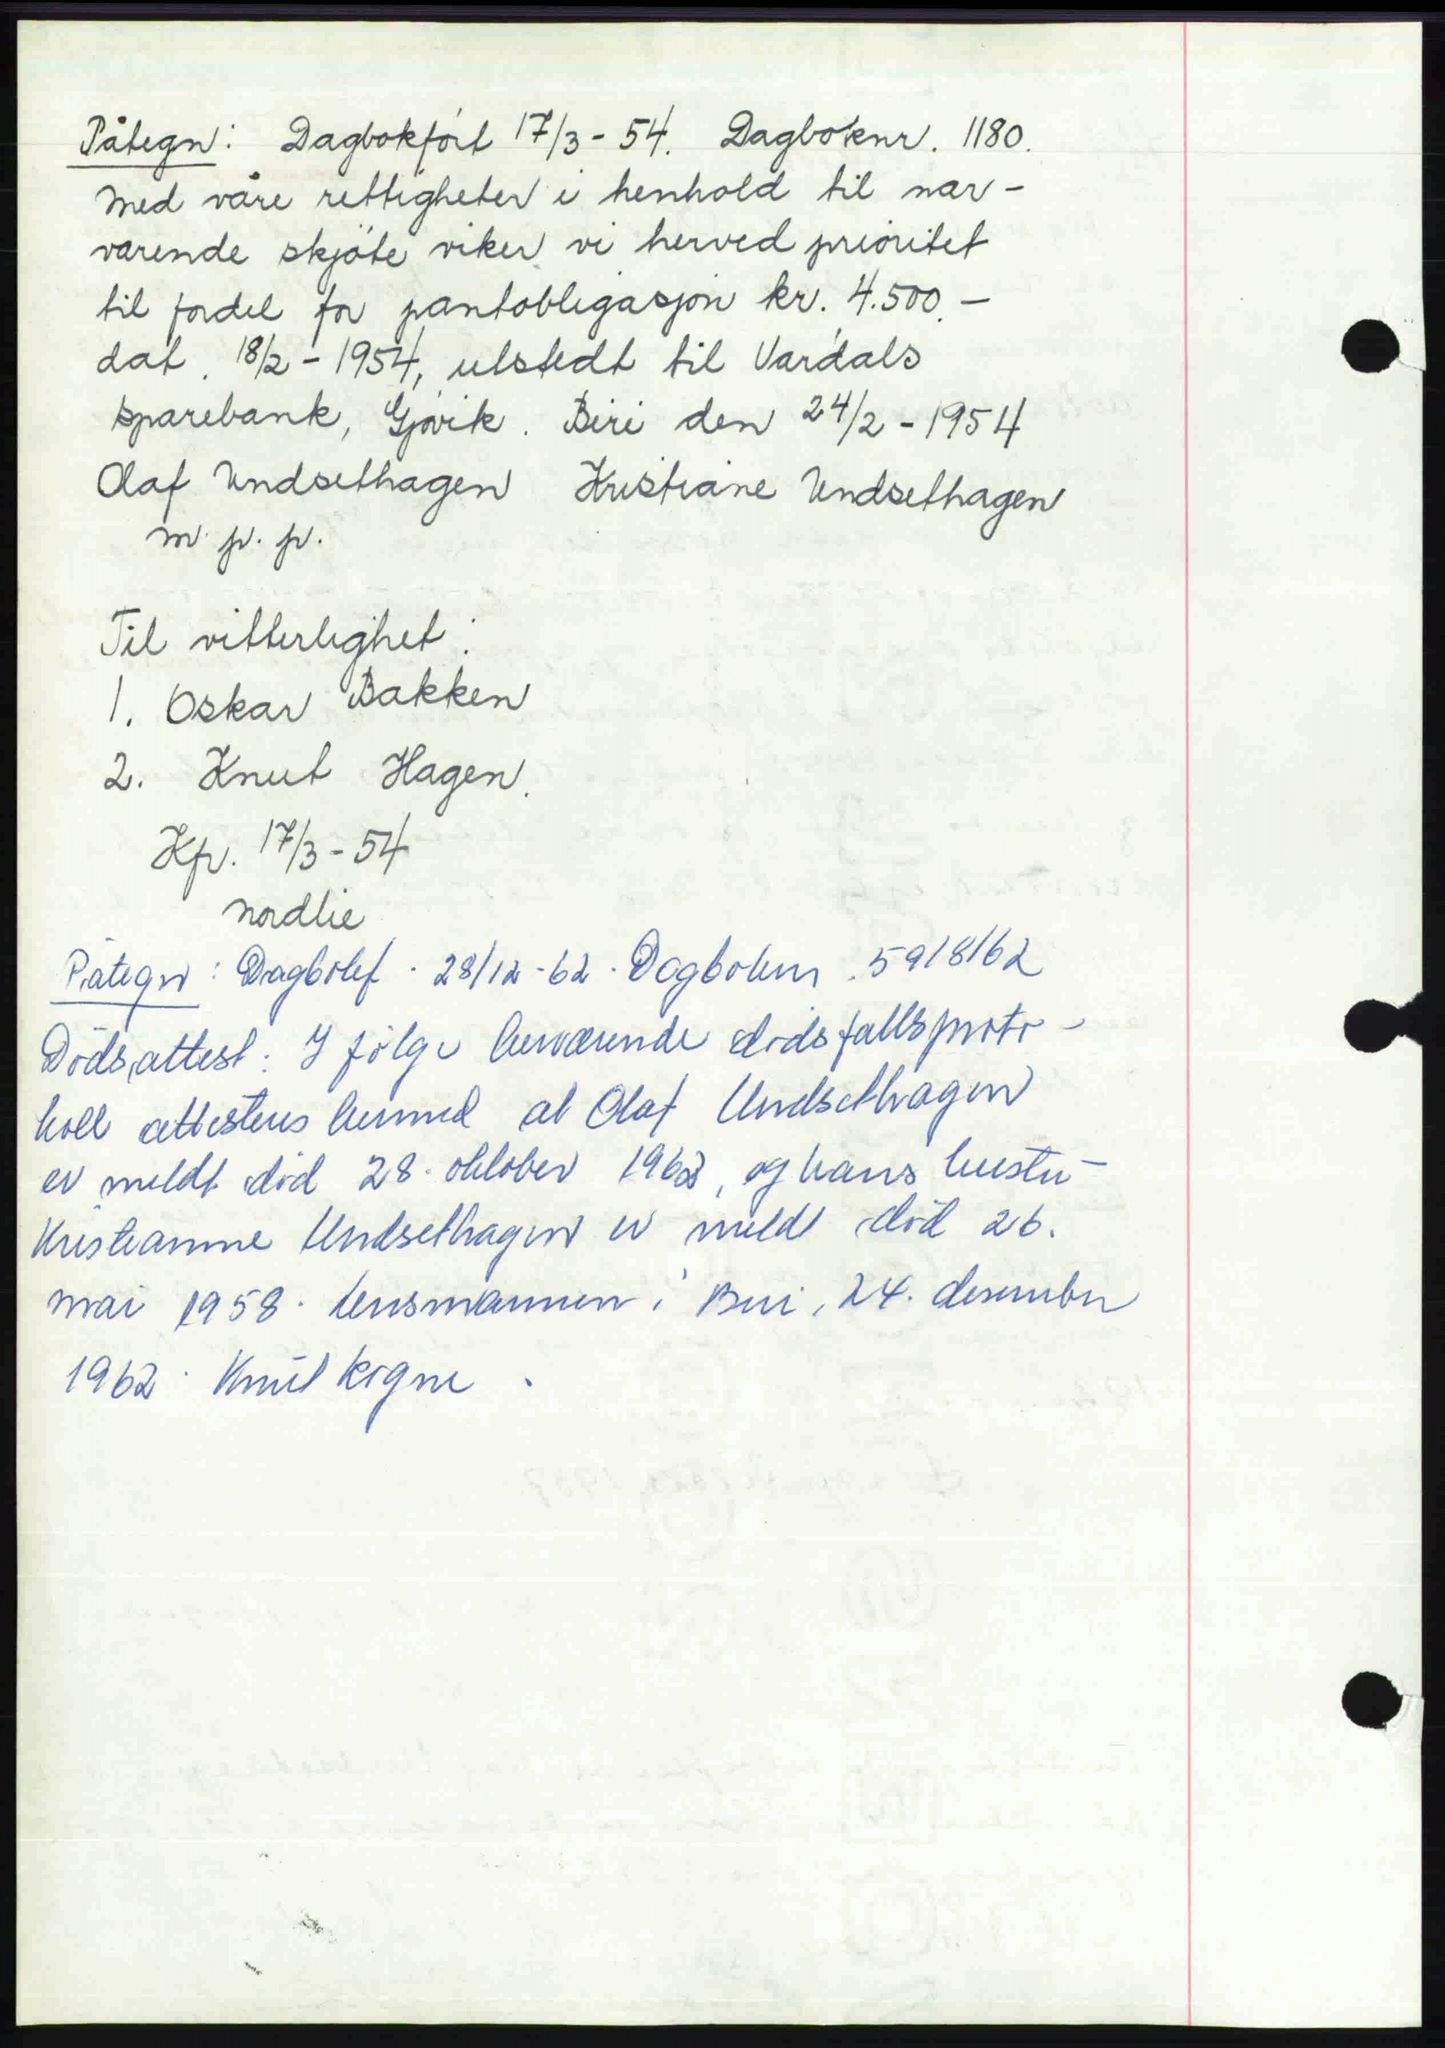 Påtegn: Dagbokført 17/3-54. Dagboknr. 1180.
Med våre rettigheter i henhold til nær-
værende skjöte viker vi herved prioritet
til fordel for pantobligasjon kr. 4.500.-
dat. 18/2-1954, utstedt til Vardals
sparebank, Gjøvik. Biri den 24/2-1954
Olaf Undsethagen Kristiane Undsethagen
m. p. p.
Til vitterlighet:
1. Oskar Bakken
2. Knut Hagen.
Kp. 17/3-54
Nordlie
Påtegn: Dagbokf. 28/12-62. Dagboknr. 5918/62
Dödsattest: I følge herværende dødsfallsproto-
koll attesteres hermed at Olaf Undsethagen
er meldt død 28. oktober 1962, og hans hustru
Kristianne Undsethagen er meldt död 26.
mai 1958. Lensmannen i Biri, 24. desember
1962. Knut